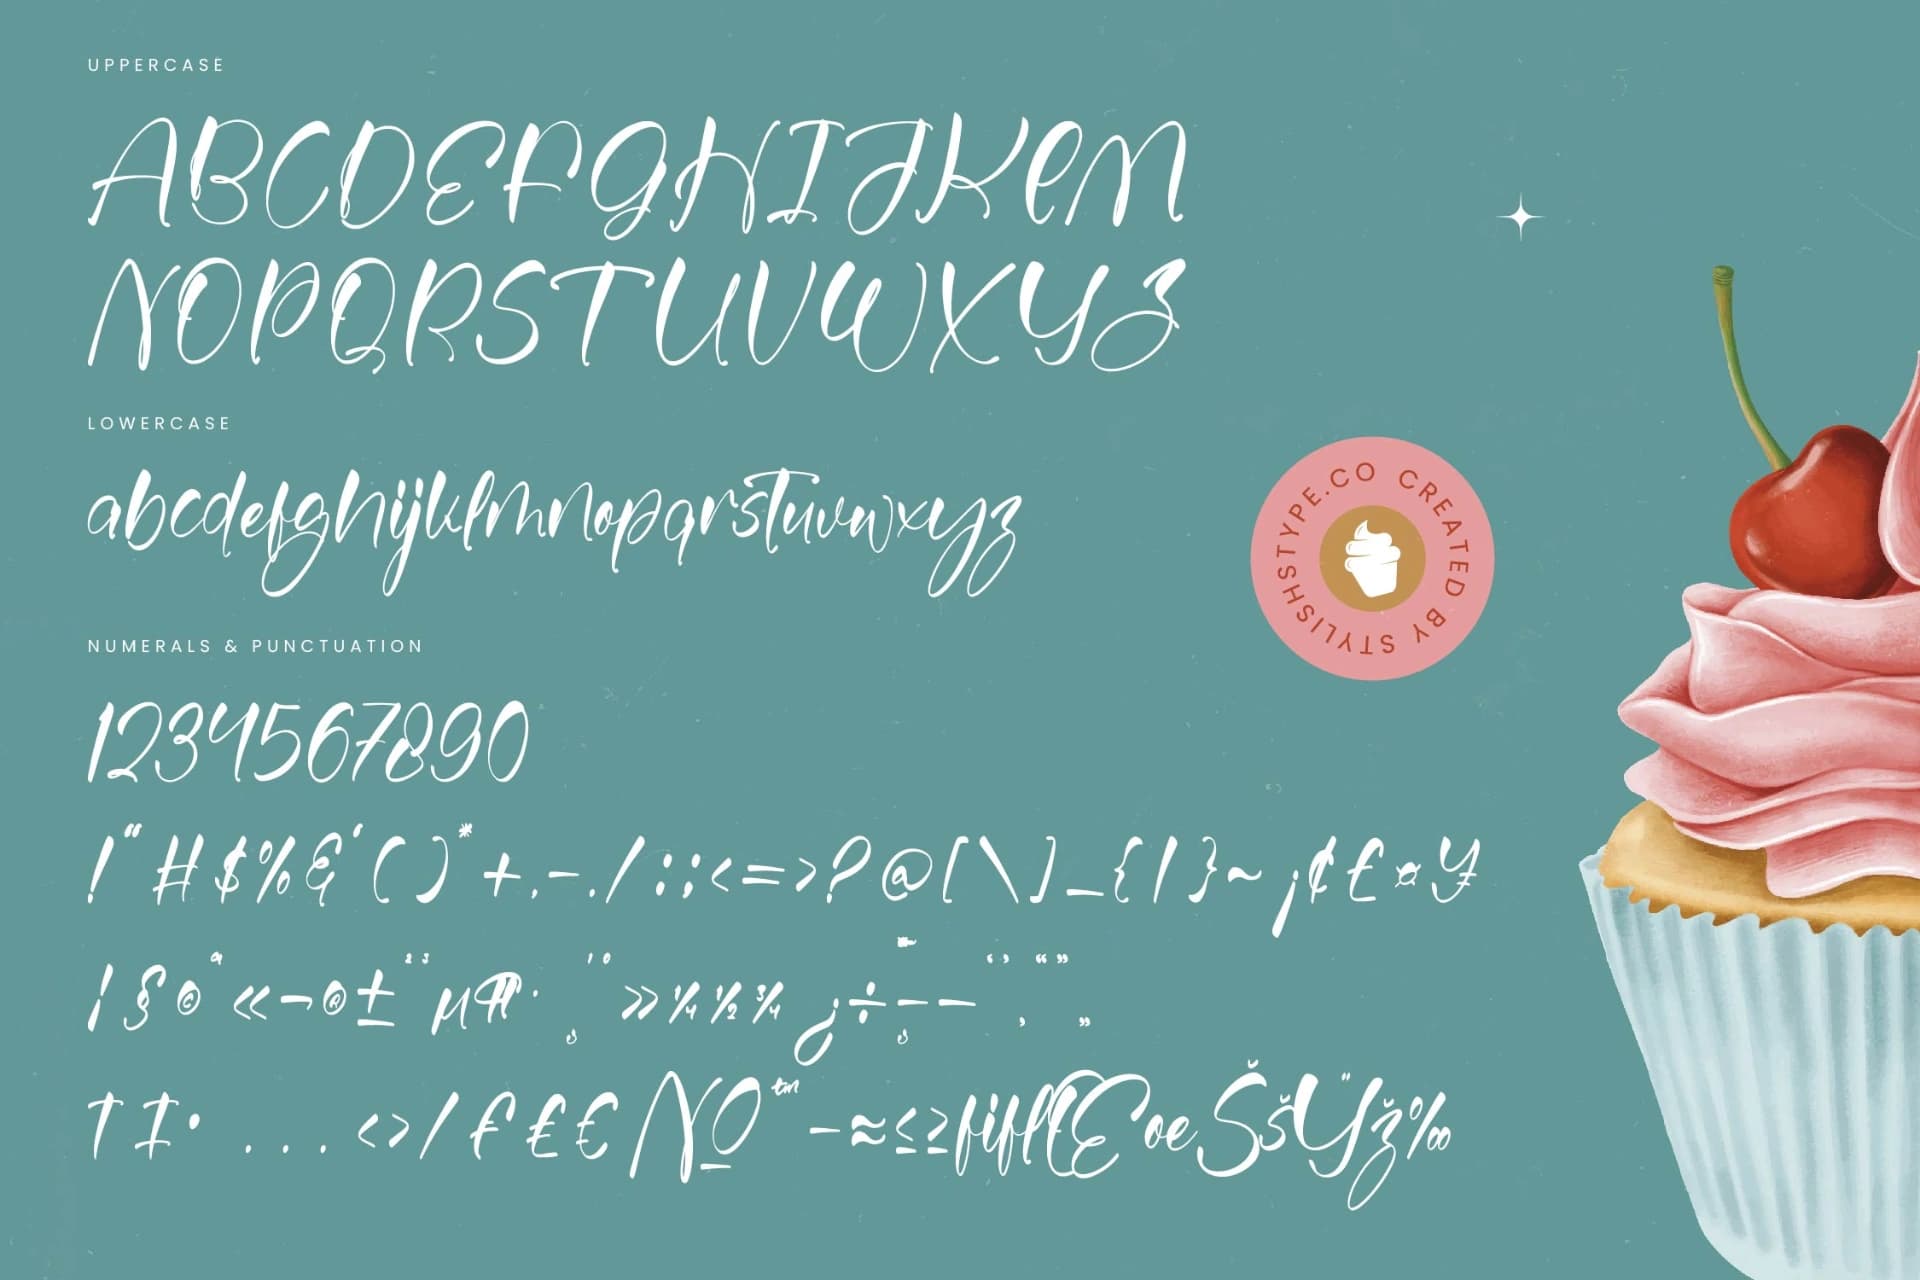 UPPERCASE
ABCDEFGHIJKLM
NOPQRSTUVWXYZ
LOWERCASE
abcdefghijklmnopqrstuvwxyz
STYLISHSTYPE.CO CREATED BY
NUMERALS & PUNCTUATION
1234567890
!"#$%&'()*+,-./:;<=>?@[\]_{|}~¡¢£¤¥
¦§©ª«¬®±²³µ¶·¸¹º»¼½¾¿÷–— ‘’‚“”„
†‡•...‹›/₣₤€№™−≈≤≥fiflŒœŠšŸž‰